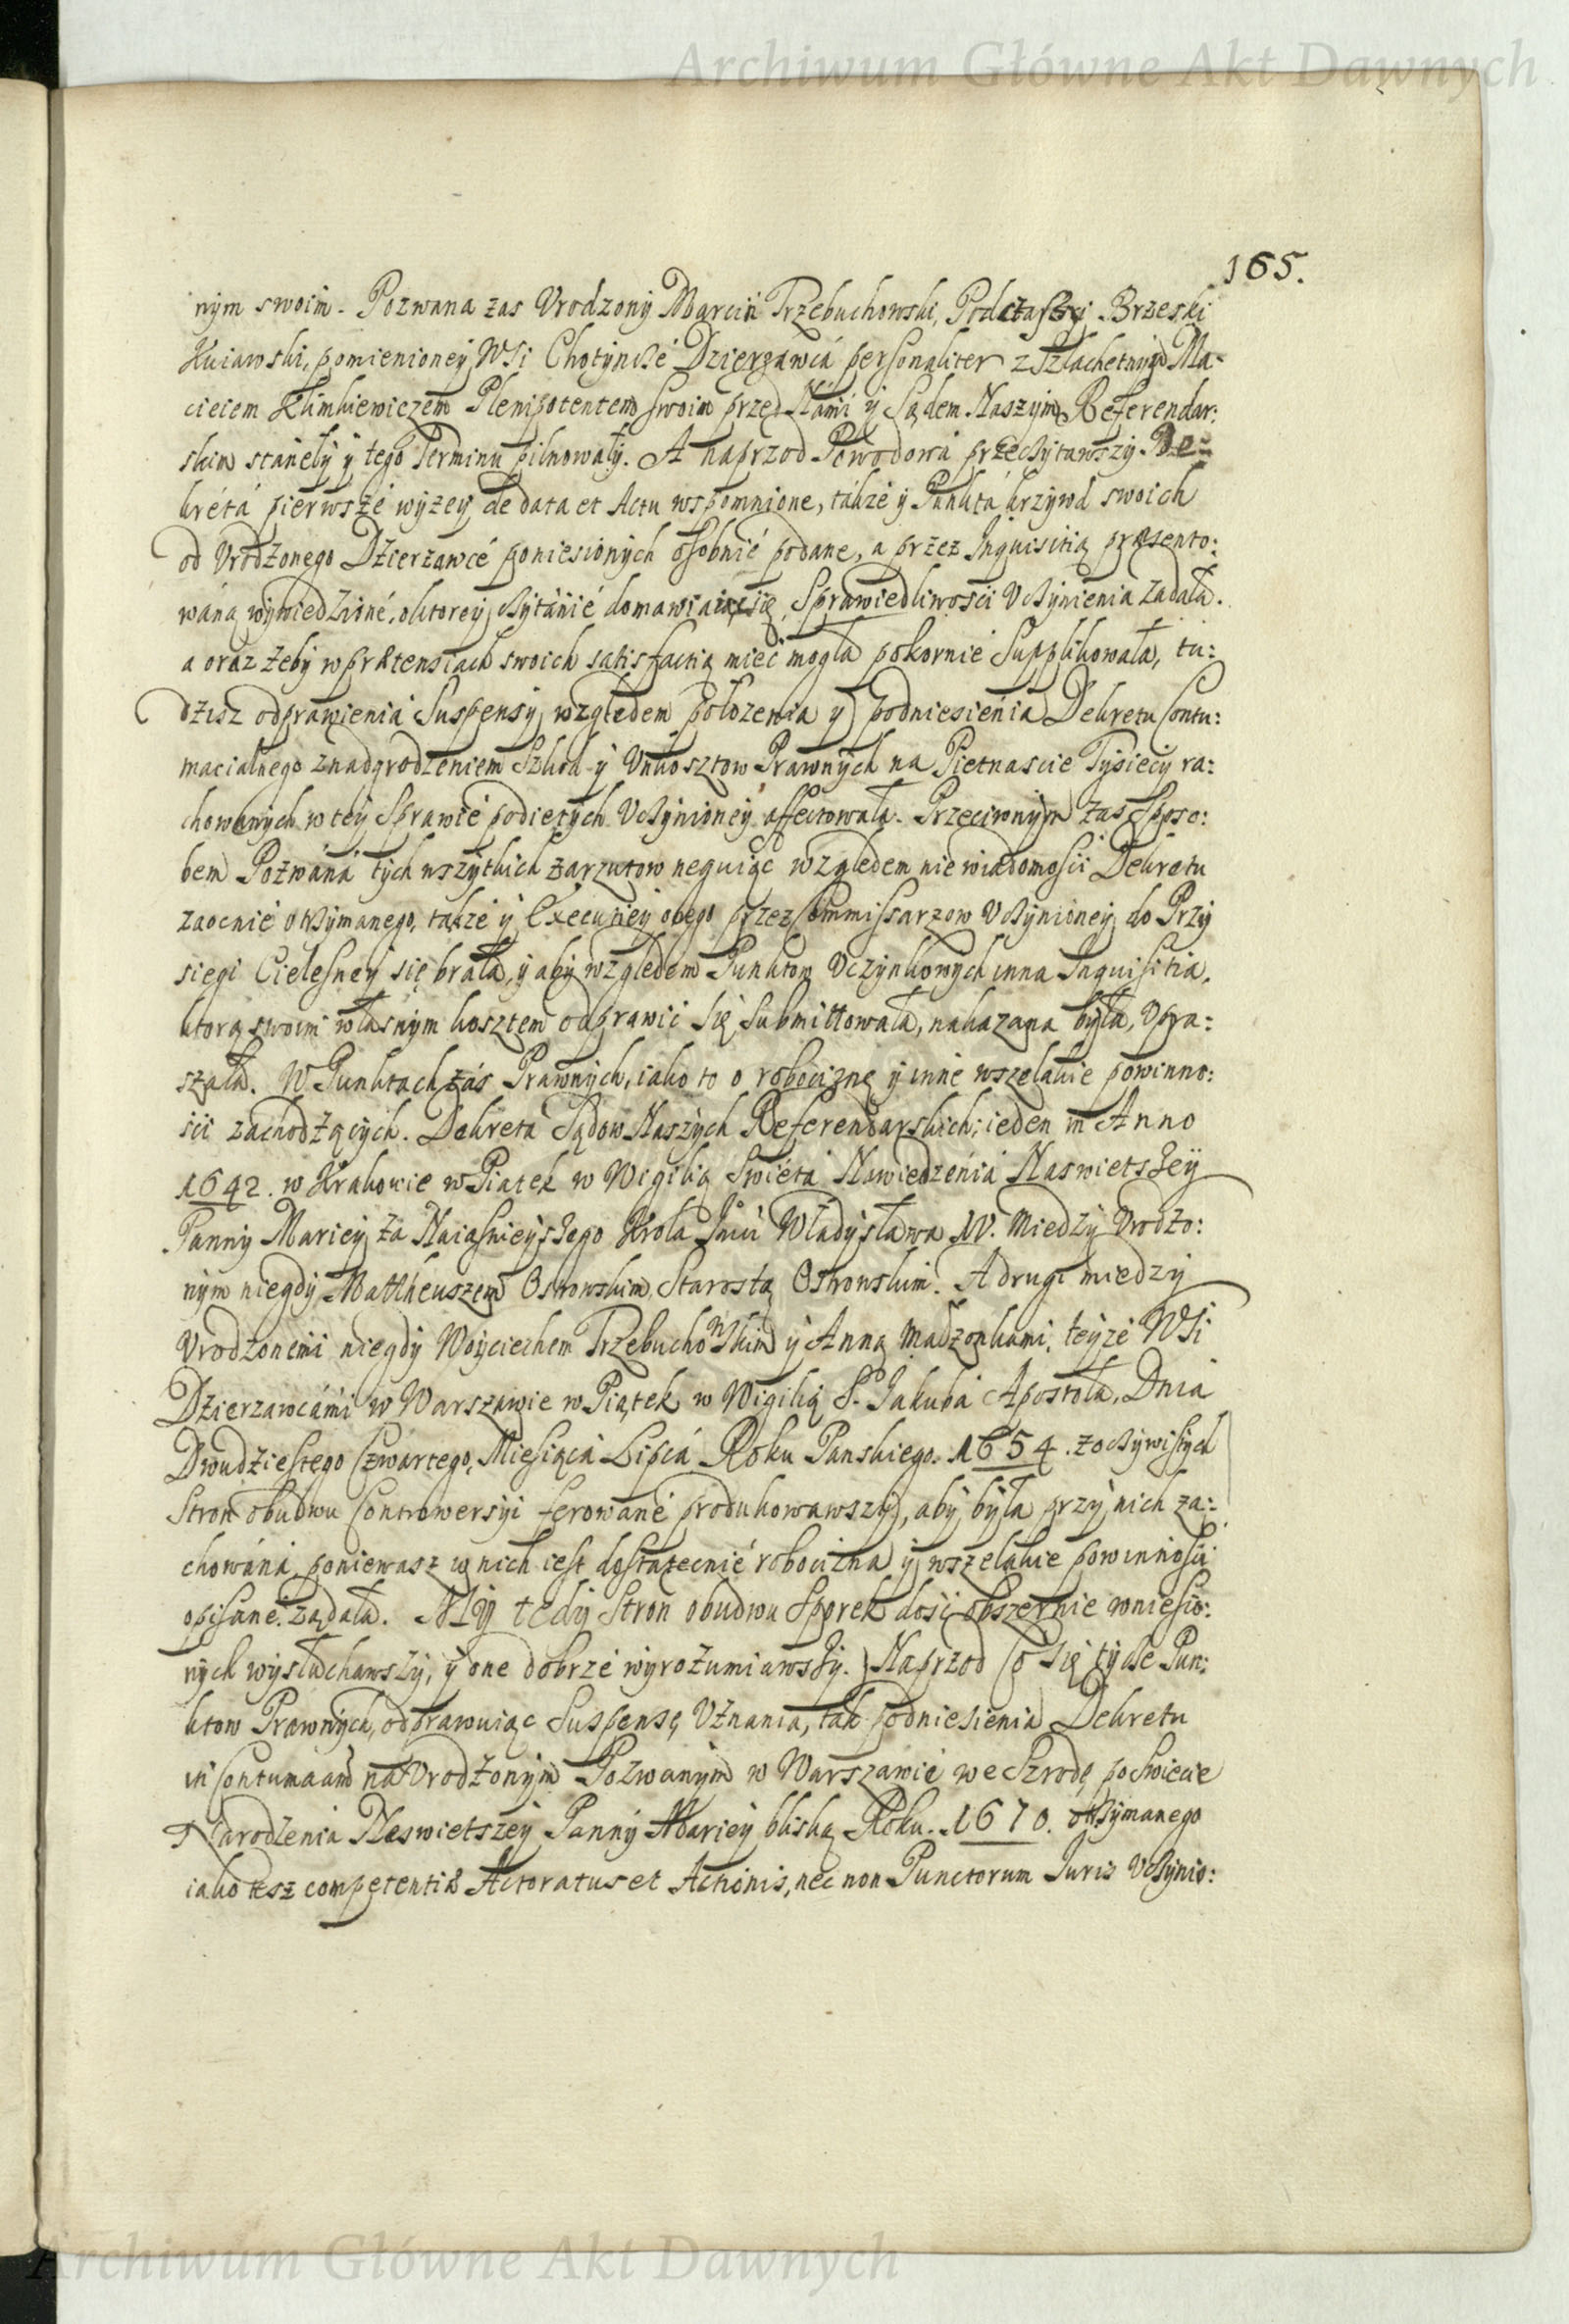 Archiwum Główne Akt Dawnych
165.
nym swoim. Pozwana zas Vrodzony Marcin Trzebuchowski, Podczaszy Brzeski
Kuiawski, pomienioney Wsi Chotynskié Dzierzawcá personaliter z Szlachetnym Ma-
cieiem Klimkiewiczem Plenipotentem swoim przed Námi y Sądem Naszym Referendar:
skim stanęły y tego Terminu pilnowały. A naprzod Powodowa przeczytawszy De-
kreta pierwsze wyzey de data et Actu wspomnione, także y Punkta krzywd swoich
od Vrodzonego Dzierzawcé poniesionych osobnié podane, a przez Inquisitią præsento:
waną wywiedzioné, o ktorey czytanié domawiaiąc się, Sprawiedliwości Vczynienia żądała.
a oraz żeby w prætensiach swoich satisfactią mieć mogła pokornie Supplikowała, tu:
dzisz odprawienia Suspensy, względem położenia y podniesienia Dekretu Contu:
macialnego z nadgrodzeniem Szkod y Vnkosztow Prawnych na Pietnascie Tysięcy ra:
chowanych w tey Sprawie podiętych Vczynioney affectowała. Przeciwnym zas Sposo:
bem Pozwána tych wszytkich zarzutow neguiąc względem niewiadomości Dekretu
zaocznie otrzymanego, takze y Executiey onego przez Commissarzow Vczynioney do Przy
siegi Cielesney się brała, y aby względem Punktow Vczynkowych inna Inquisitia,
ktorą swoim własnym kosztem odprawić się Submittowała, nakazana była, Vpra:
szała. W Punktach zas Prawnych, iako to o robociznę y inne wszelakie powinno:
ści zachodzących. Dekreta Sądow Naszych Referendarskich; ieden in Anno
1642. w Krakowie w Piątek w Wigilią Swięta Nawiedzenia Naswietszey
Panny Mariey za Naiasnieyszego Krola Jmci Władysława IV. Miedzy Vrodzo:
nym niegdy Mattheuszem Ostrowskim Starostą Ostrowskim. A drugi miedzy
Vrodzonemi niegdy Woyciechem Trzebuchowskim y Anną Małzonkami, teyze Wsi
Dzierzawcámi w Warszawie w Piątek w Wigilią S. Jakuba Apostoła, Dnia
Dwudziestego Czwartego, Miesiąca Lipca Roku Panskiego. 1654. z oczywistych
Stron obudwu Controwersyi ferowané produkowawszy, aby była przy nich za:
chowána, poniewasz w nich iest dostatecnié robocizna y wszelakie powinności
opisane. żądała. My tedy Stron obudwu Sporek dość obszernie wniesio:
nych wysłuchawszy, y one dobrze wyrozumiawszy. Naprzod Co się tycze Pun:
ktow Prawnych, odprawuiąc Suspensę Vznania, tak podniesienia Dekretu
in Contumaciam na Vrodzonym Pozwanym w Warszawie we Szrodę po Swiecie
Narodzenia Naswietszey Panny Mariey bliską Roku. 1670. otrzymanego
iako tesz competentiæ Actoratus et Actionis, nec non Punctorum Juris Vczynio:
Archiwum Główne Akt Dawnych